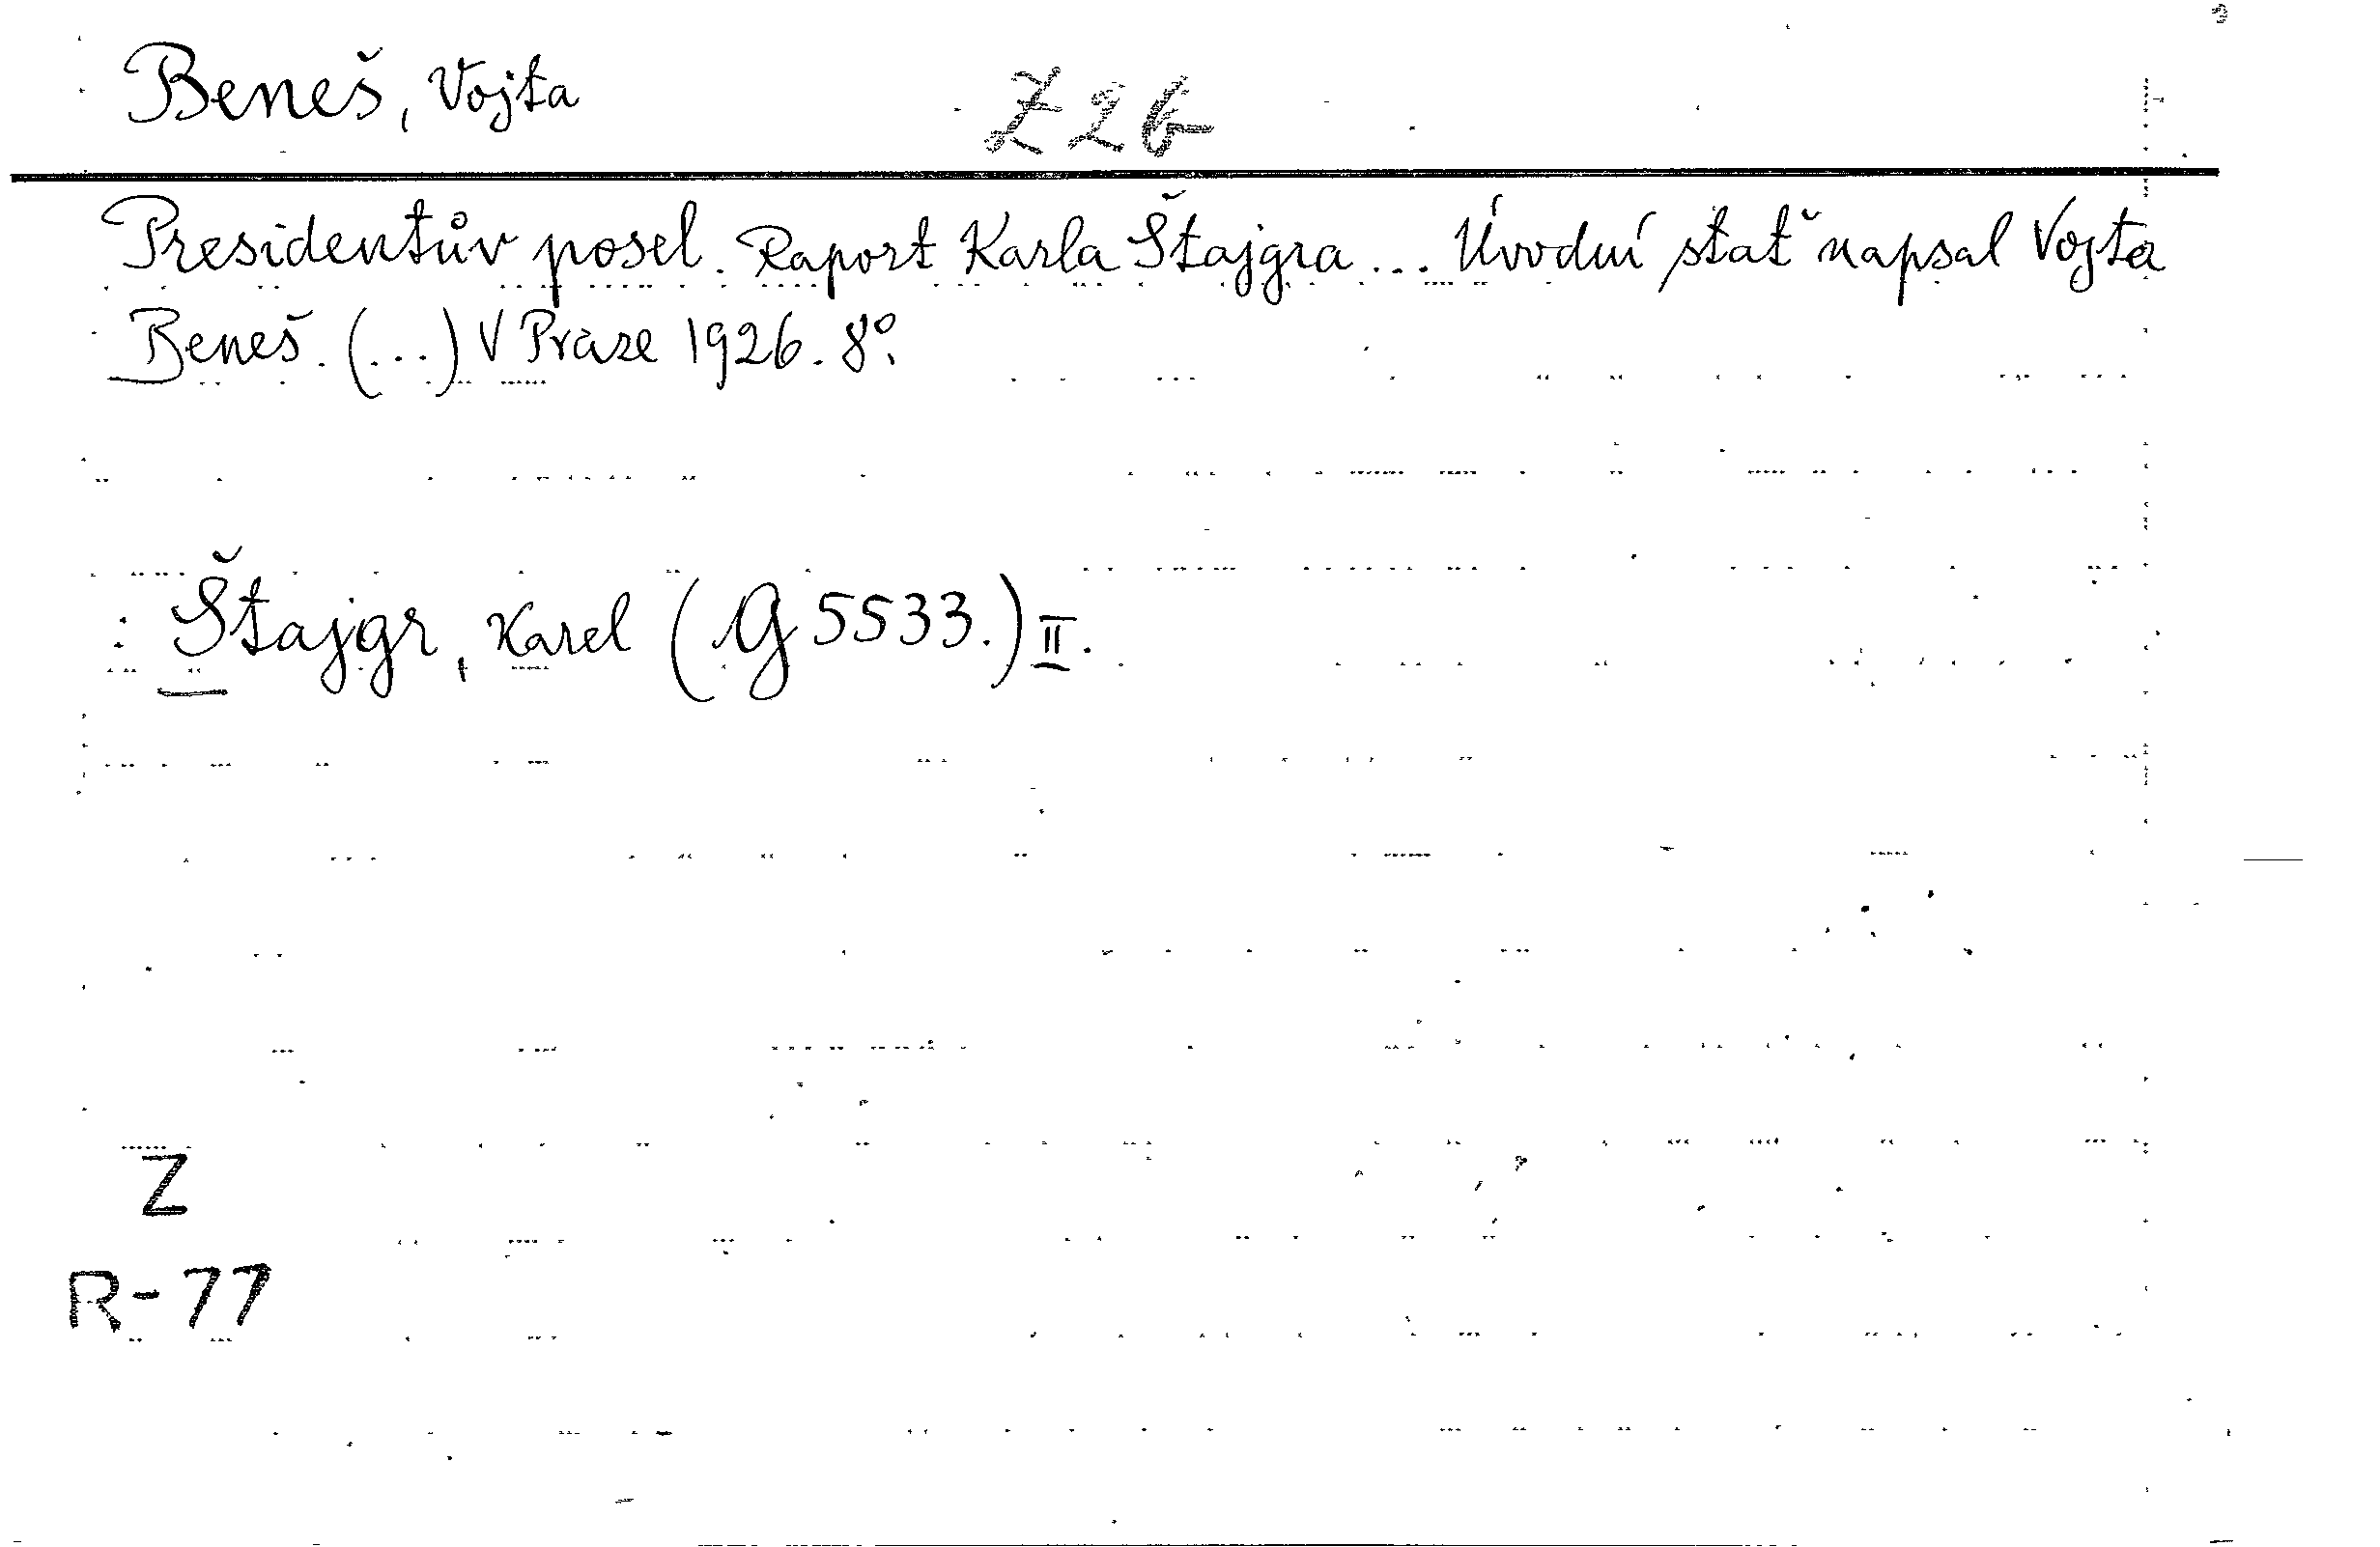 Beneš, Vojta
Z 26
Presidentův posel. Raport Karla Štajgra ... Úvodní stať napsal Vojta
Beneš. (...) V Praze 1926. 8°.
Štajgr, Karel (G 5533.) II.
Z
R-77